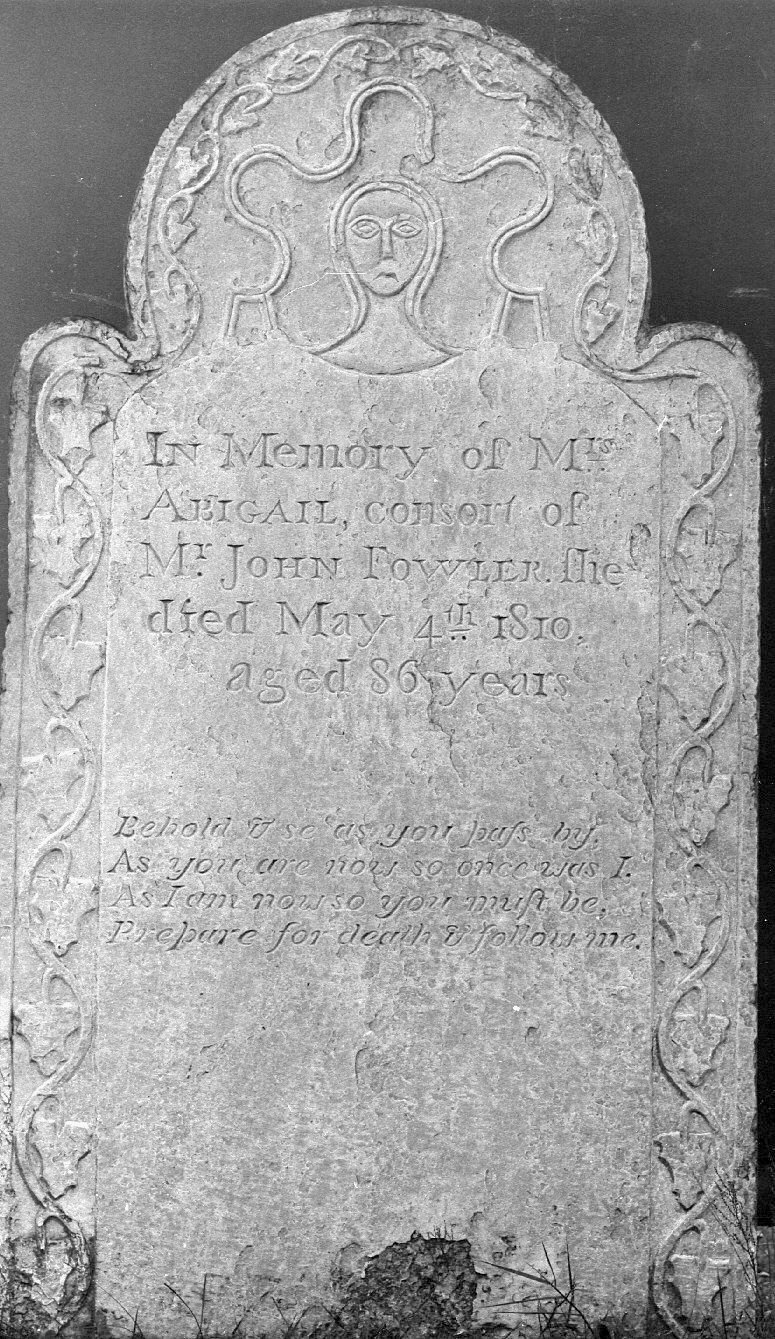 In Memory of Mrs
ABIGAIL, consort of
Mr. JOHN FOWLER. ſhe
died May 4th 1810.
aged 86 years
Behold & se as you paſs by,
As you are now so once was I.
As I am now so you muſt be,
Prepare for death & follow me.